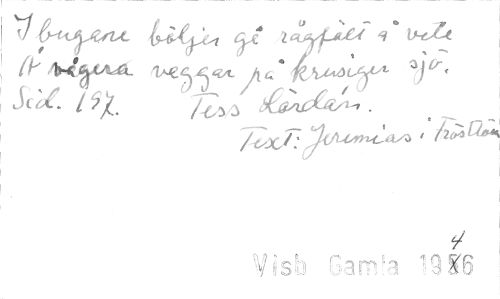 I bugane böljer gå rågfält å vete
Å vågera vaggar på krusiger sjö.
Sid. 197. Tess Lördan.
Text: Jeremias i Tröstlösa
Visb Gamla 1946